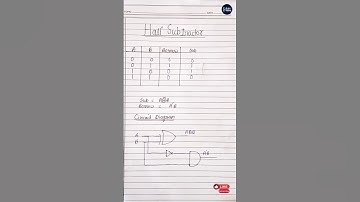 Half Subtractor
A B Borrow Sub
0 0 0 0
0 1 1 1
1 0 0 1
1 1 0 0
Sub = A⊕B
Borrow = A̅B
Circuit Diagram
A
B
A⊕B
A̅B